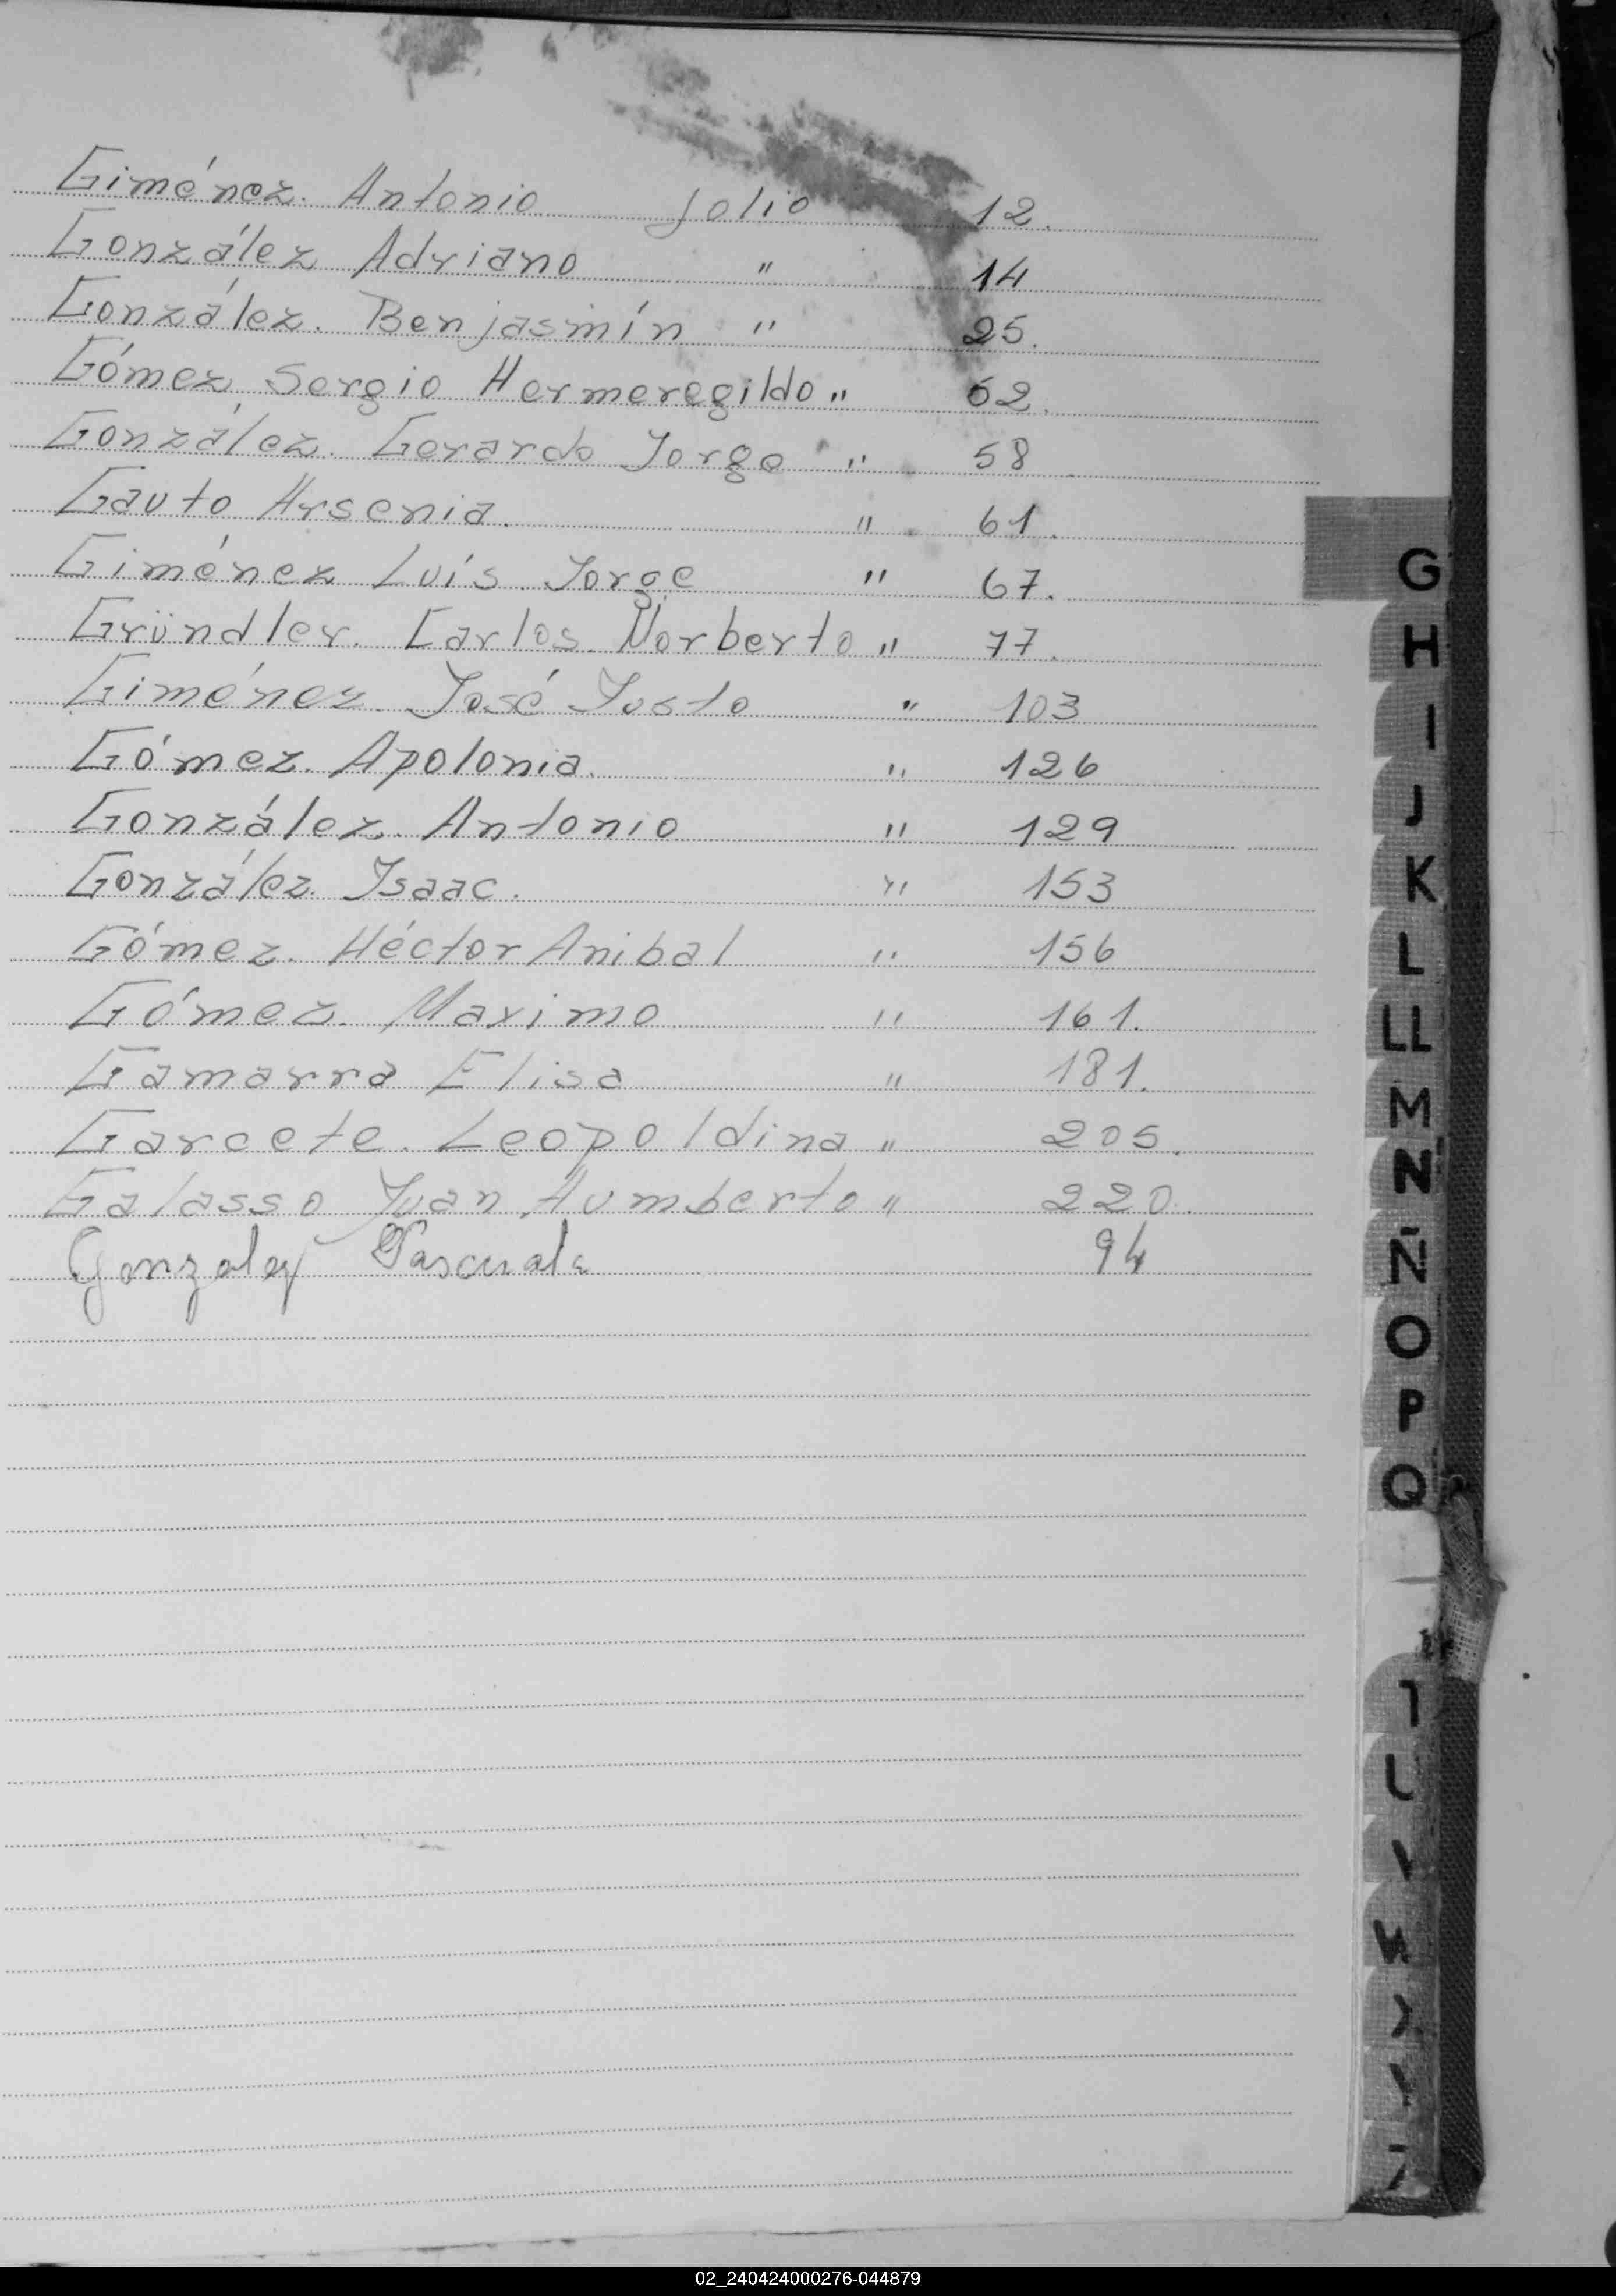 Giménez. Antonio folio 12.
González Adriano " 14
González. Benjasmín " 25.
Gómez Sergio Hermeregildo " 52.
González. Gerardo Jorge " 58
Gauto Arsenia. " 61.
Giménez Luís Jorge " 67.
Gründler. Carlos Norberto " 77.
Giménez. José Justo " 103
Gómez. Apolonia. " 126
González. Antonio " 129
González. Isaac. " 153
Gómez. Héctor Anibal " 156
Gómez. Maximo " 161.
Gamarra Elisa " 181.
Garcete. Leopoldina " 205.
Galasso Juan Humberto " 220.
Gonzalez Pascuala 94
G
H
I
J
K
L
LL
M
N
Ñ
O
P
Q
02_240424000276-044879